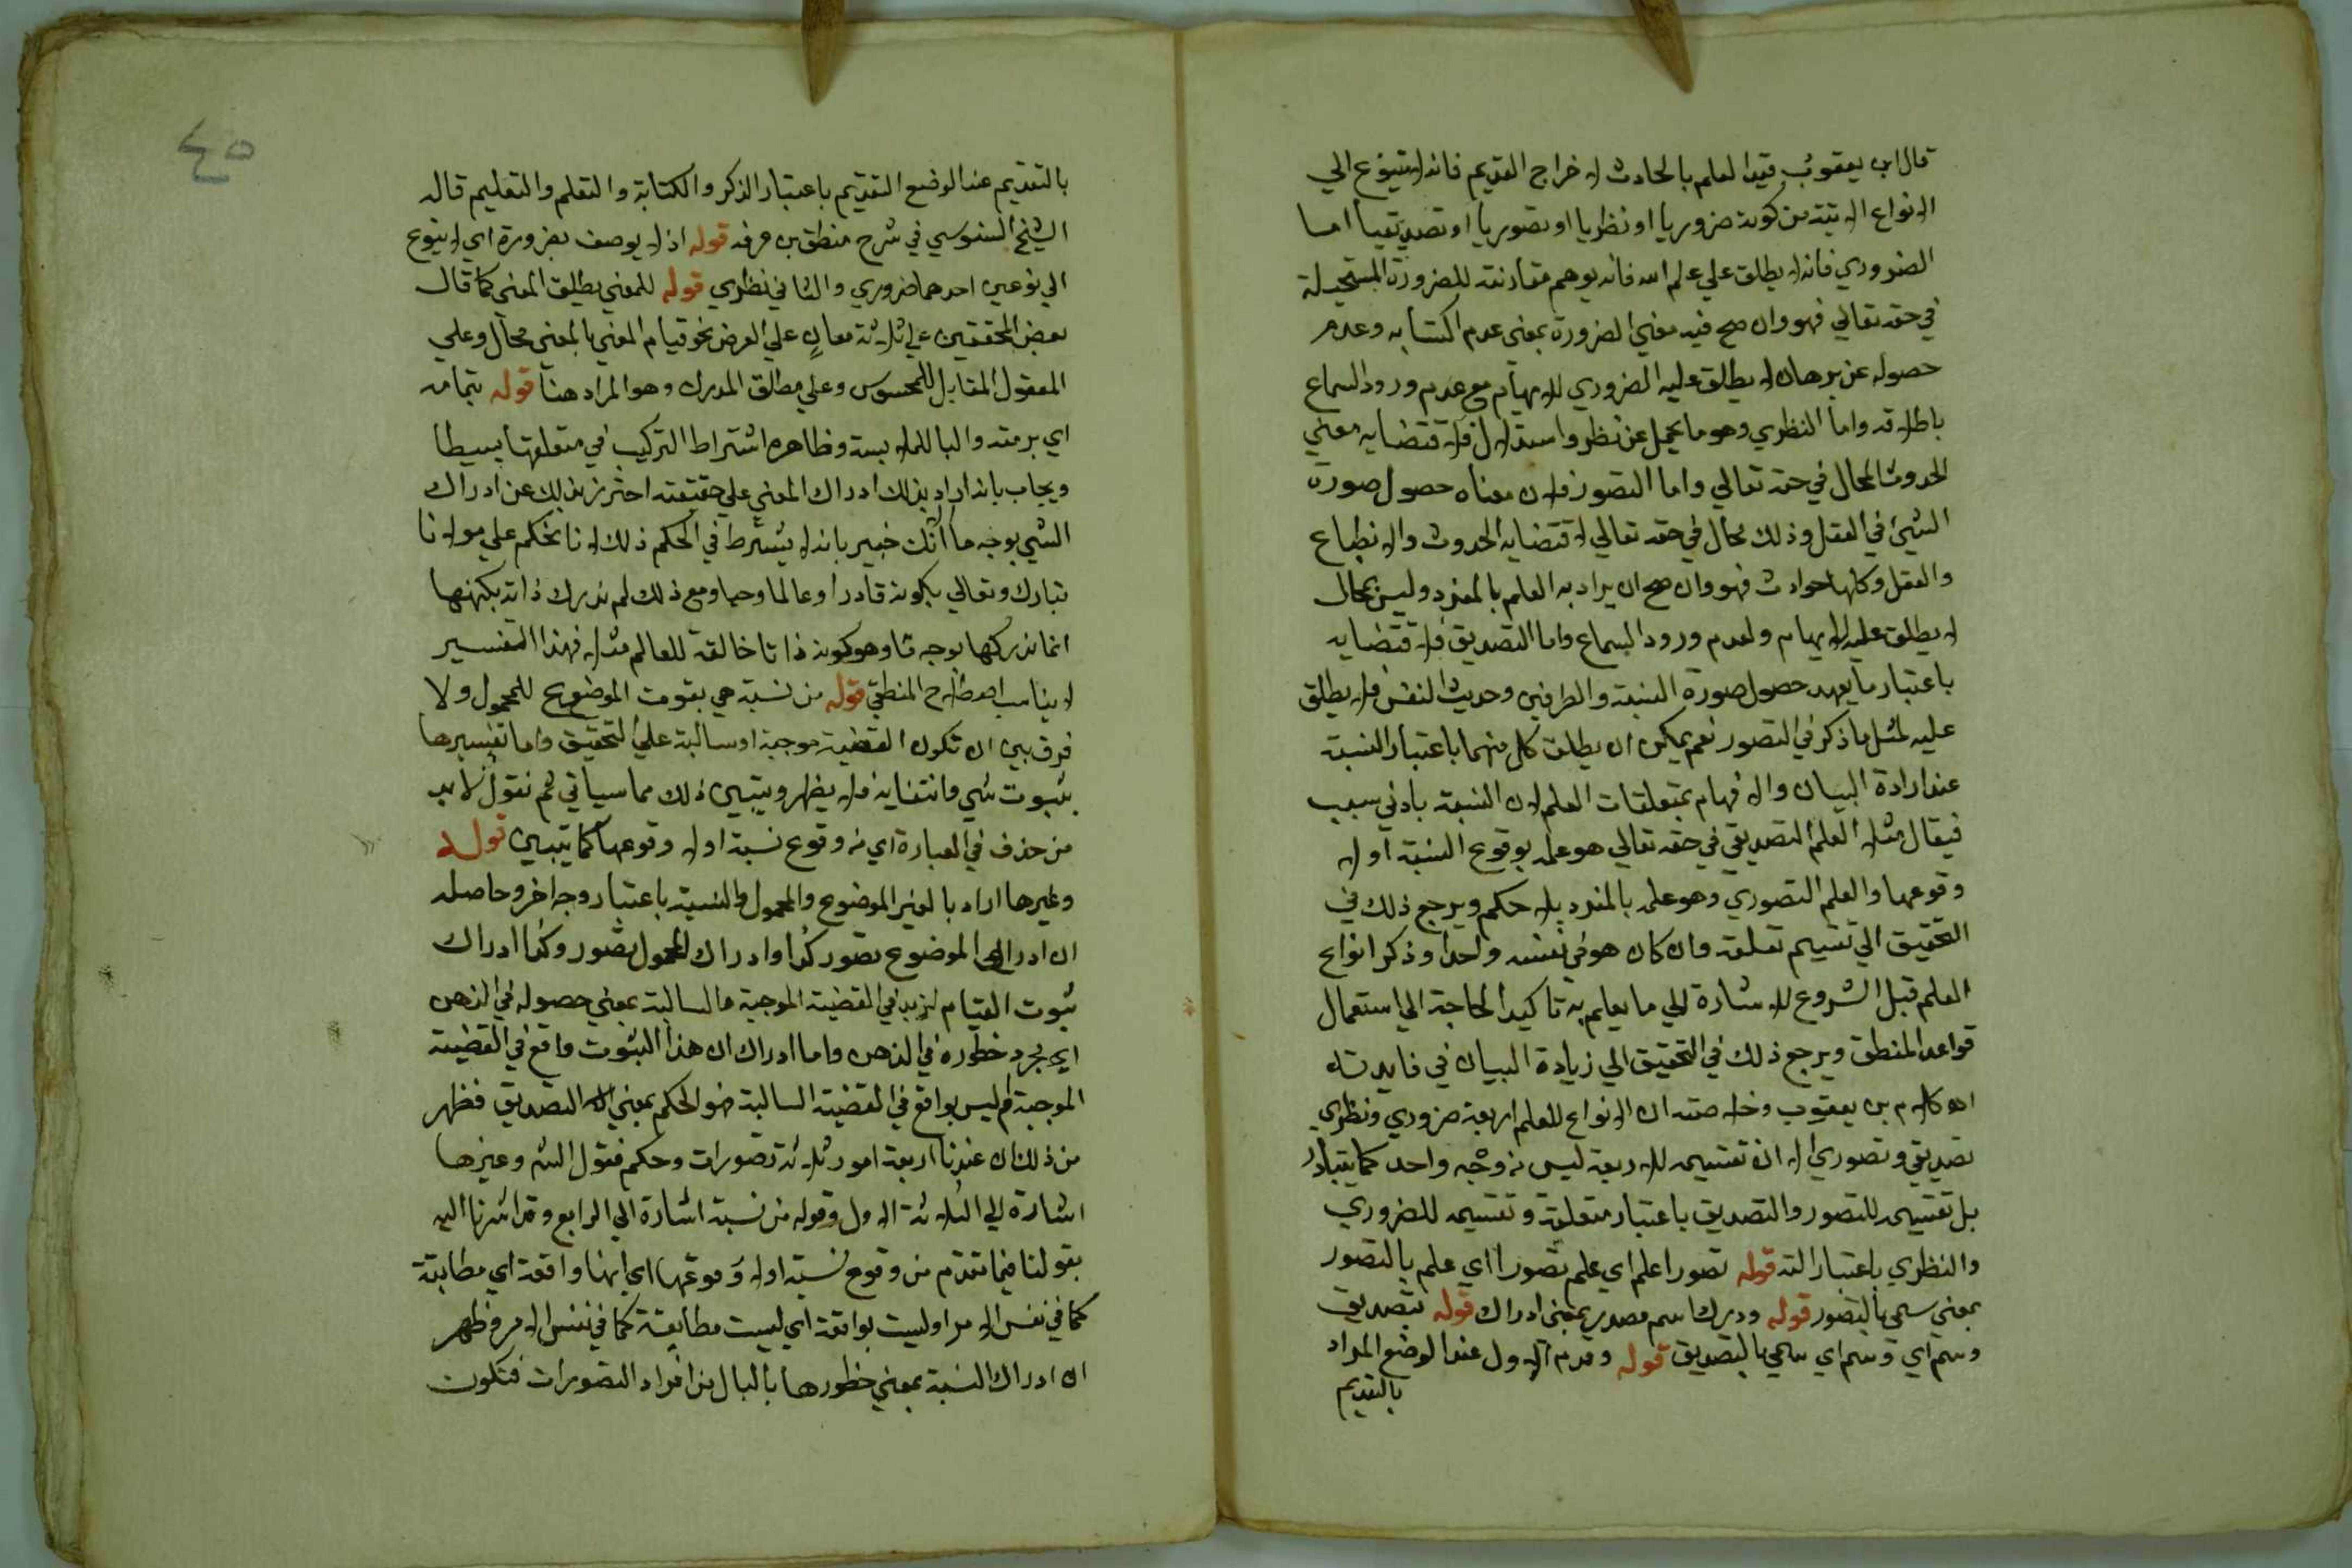 قال ابن يعقوب قيد العلم بالحادث لاخراج القديم فانه لا يتنوع الي
الانواع الاتية من كونه ضروريا او نظريا او تصوريا او تصديقيا اما
الضروري فانه لا يطلق علي علم الله فانه يوهم مقارنته للضرورة المستحيلة
في حقه تعالي فهو وان صح فيه معني الضرورة بمعني عدم اكتسابه وعدم
حصوله عن برهان لا يطلق عليه الضروري للايهام مع عدم ورود السماع
باطلاقه واما النظري وهو ما يحصل عن نظر واستدلال فلاقتضايه معني
الحدوث المحال في حقه تعالي واما التصور فلان معناه حصول صورة
الشيئ في العقل وذلك محال في حقه تعالي لاقتضايه الحدوث والانطباع
والعقل وكلها حوادث فهو وان صح ان يراد به العلم بالمفرد وليس بمحال
لا يطلق عليه للايهام ولعدم ورود السماع واما التصديق فلاقتضايه
باعتبار ما يعهد حصول صورة النسبة والطرفين وحديث النفس فلا يطلق
عليه لمثل ما ذكر في التصور نعم يمكن ان يطلق كل منهما باعتبار النسبة
عند ارادة البيان والافهام بمتعلقات العلم لان النسبة بادني سبب
فيقال مثلا العلم التصديقي في حقه تعالي هو علمه بوقوع النسبة اولا
وقوعها والعلم التصوري وهو علمه بالمفرد بلا حكم ويرجع ذلك في
التحقيق الي تقسيم تعلقه وان كان هو في نفسه واحدا وذكر انواع
العلم قبل الشروع للاشارة الي ما يعلم به تاكيد الحاجة الي استعمال
قواعد المنطق ويرجع ذلك في التحقيق الي زيادة البيان في فايدته
اه كلام بن يعقوب وخلاصته ان الانواع للعلم اربعة ضروري ونظري
تصديقي وتصوري الا ان تقسيمه للاربعة ليس من وجه واحد كما يتبادر
بل تقسيمه للتصور والتصديق باعتبار متعلقه وتقسيمه للضروري
والنظري باعتبار الته قوله تصورا علم اي علم تصورا اي علم بالتصور
بمعني سمي بالتصور قوله ودرك اسم مصدر بمعني ادراك قوله بتصديق
وسم اي وسم اي سمي بالتصديق قوله وقدم الاول عند الوضع المراد
بالتقديم
بالتقديم عند الوضع التقديم باعتبار الذكر والكتابة والتعلم والتعليم قاله
الشيخ السنوسي في شرح منطق بن عرفه قوله اذ لا يوصف بضرورة اي لا يتنوع
الي نوعين احدهما ضروري والثاني نظري قوله للمعني يطلق المعني كما قال
بعض المحققين علي ثلاثة معان علي العرض نحو قيام المعني بالمعني محال وعلي
المعقول المقابل للمحسوس وعلي مطلق المدرك وهو المراد هنا قوله بتمامه
اي برمته والبا للملابسة وظاهره اشتراط التركيب في متعلقها بسيطا
ويجاب بانه اراد بذلك ادراك المعني علي حقيقته احترز بذلك عن ادراك
الشي بوجه ما انك خبير بانه لا يشترط في الحكم ذلك لانا نحكم علي مولانا
تبارك وتعالي بكونه قادرا وعالما وحيا ومع ذلك لم ندرك ذاته بكنهها
انما ندركها بوجه ما وهو كونه ذاتا خالقة للعالم مثلا فهذا التفسير
لا يناسب اصطلاح المنطقي قوله من نسبة هي بقوت الموضوع للمحمول ولا
فرق بين ان تكون القضية موجبة او سالبة علي التحقيق واما تفسيرها
بثبوت شي وانتفايه فلا يظهر ويتبين ذلك مما سياتي ثم نقول لا بد
من حذف في العبارة اي من وقوع نسبة اولا وقوعها كما يتبين قوله
وغيرها اراد بالغير الموضوع والمحمول والنسبة باعتبار وجه اخر وحاصله
ان ادراك الموضوع تصور كذا وادراك المحمول تصور وكذا ادراك
ثبوت القيام لزيد في القضية الموجبة والسالبة بمعني حصوله في الذهن
اي مجرد خطوره في الذهن واما ادراك ان هذا الثبوت واقع في القضية
الموجبة او ليس بواقع في القضية السالبة هو الحكم بمعني التصديق فظهر
من ذلك ان عندنا اربعة امور ثلاثة تصورات وحكم فقول الش وغيرها
اشارة الي الثلاثة الاول وقوله من نسبة اشارة الي الرابع وقد اشرنا اليه
بقولنا فيما تقدم من وقوع نسبة اولا وقوعها اي انها واقعة اي مطابقة
كما في نفس الامر او ليست بواقعة اي ليست مطابقة كما في نفس الامر فظهر
ان ادراك النسبة بمعني خطورها بالبال من افراد التصورات فتكون
٤٥